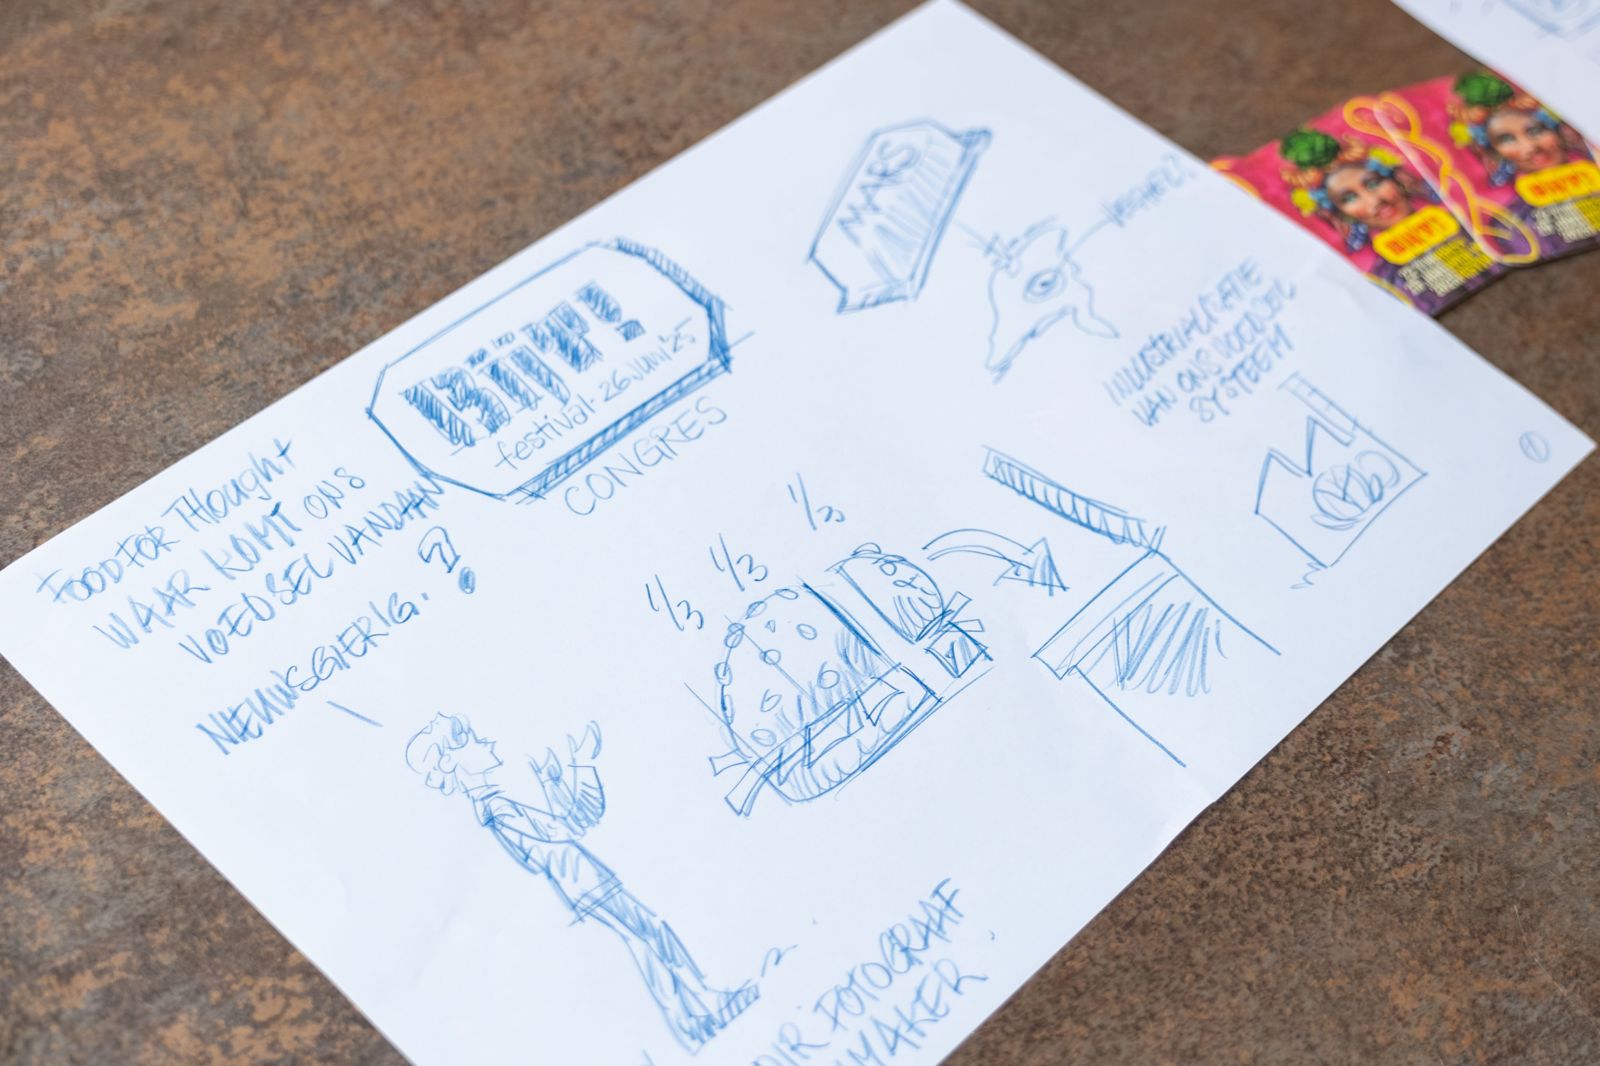 FOOD FOR THOUGHT
WAAR KOMT ONS
VOEDSEL VANDAAN
NIEUWSGIERIG. ?!
BITJPT!
festival - 26 JUNI '25
CONGRES
MARS
VEGHEL?
INDUSTRIALISATIE
VAN ONS VOEDSEL
SYSTEEM
1/3
1/3
1/3
FOTOGRAAF
MAKER.
1